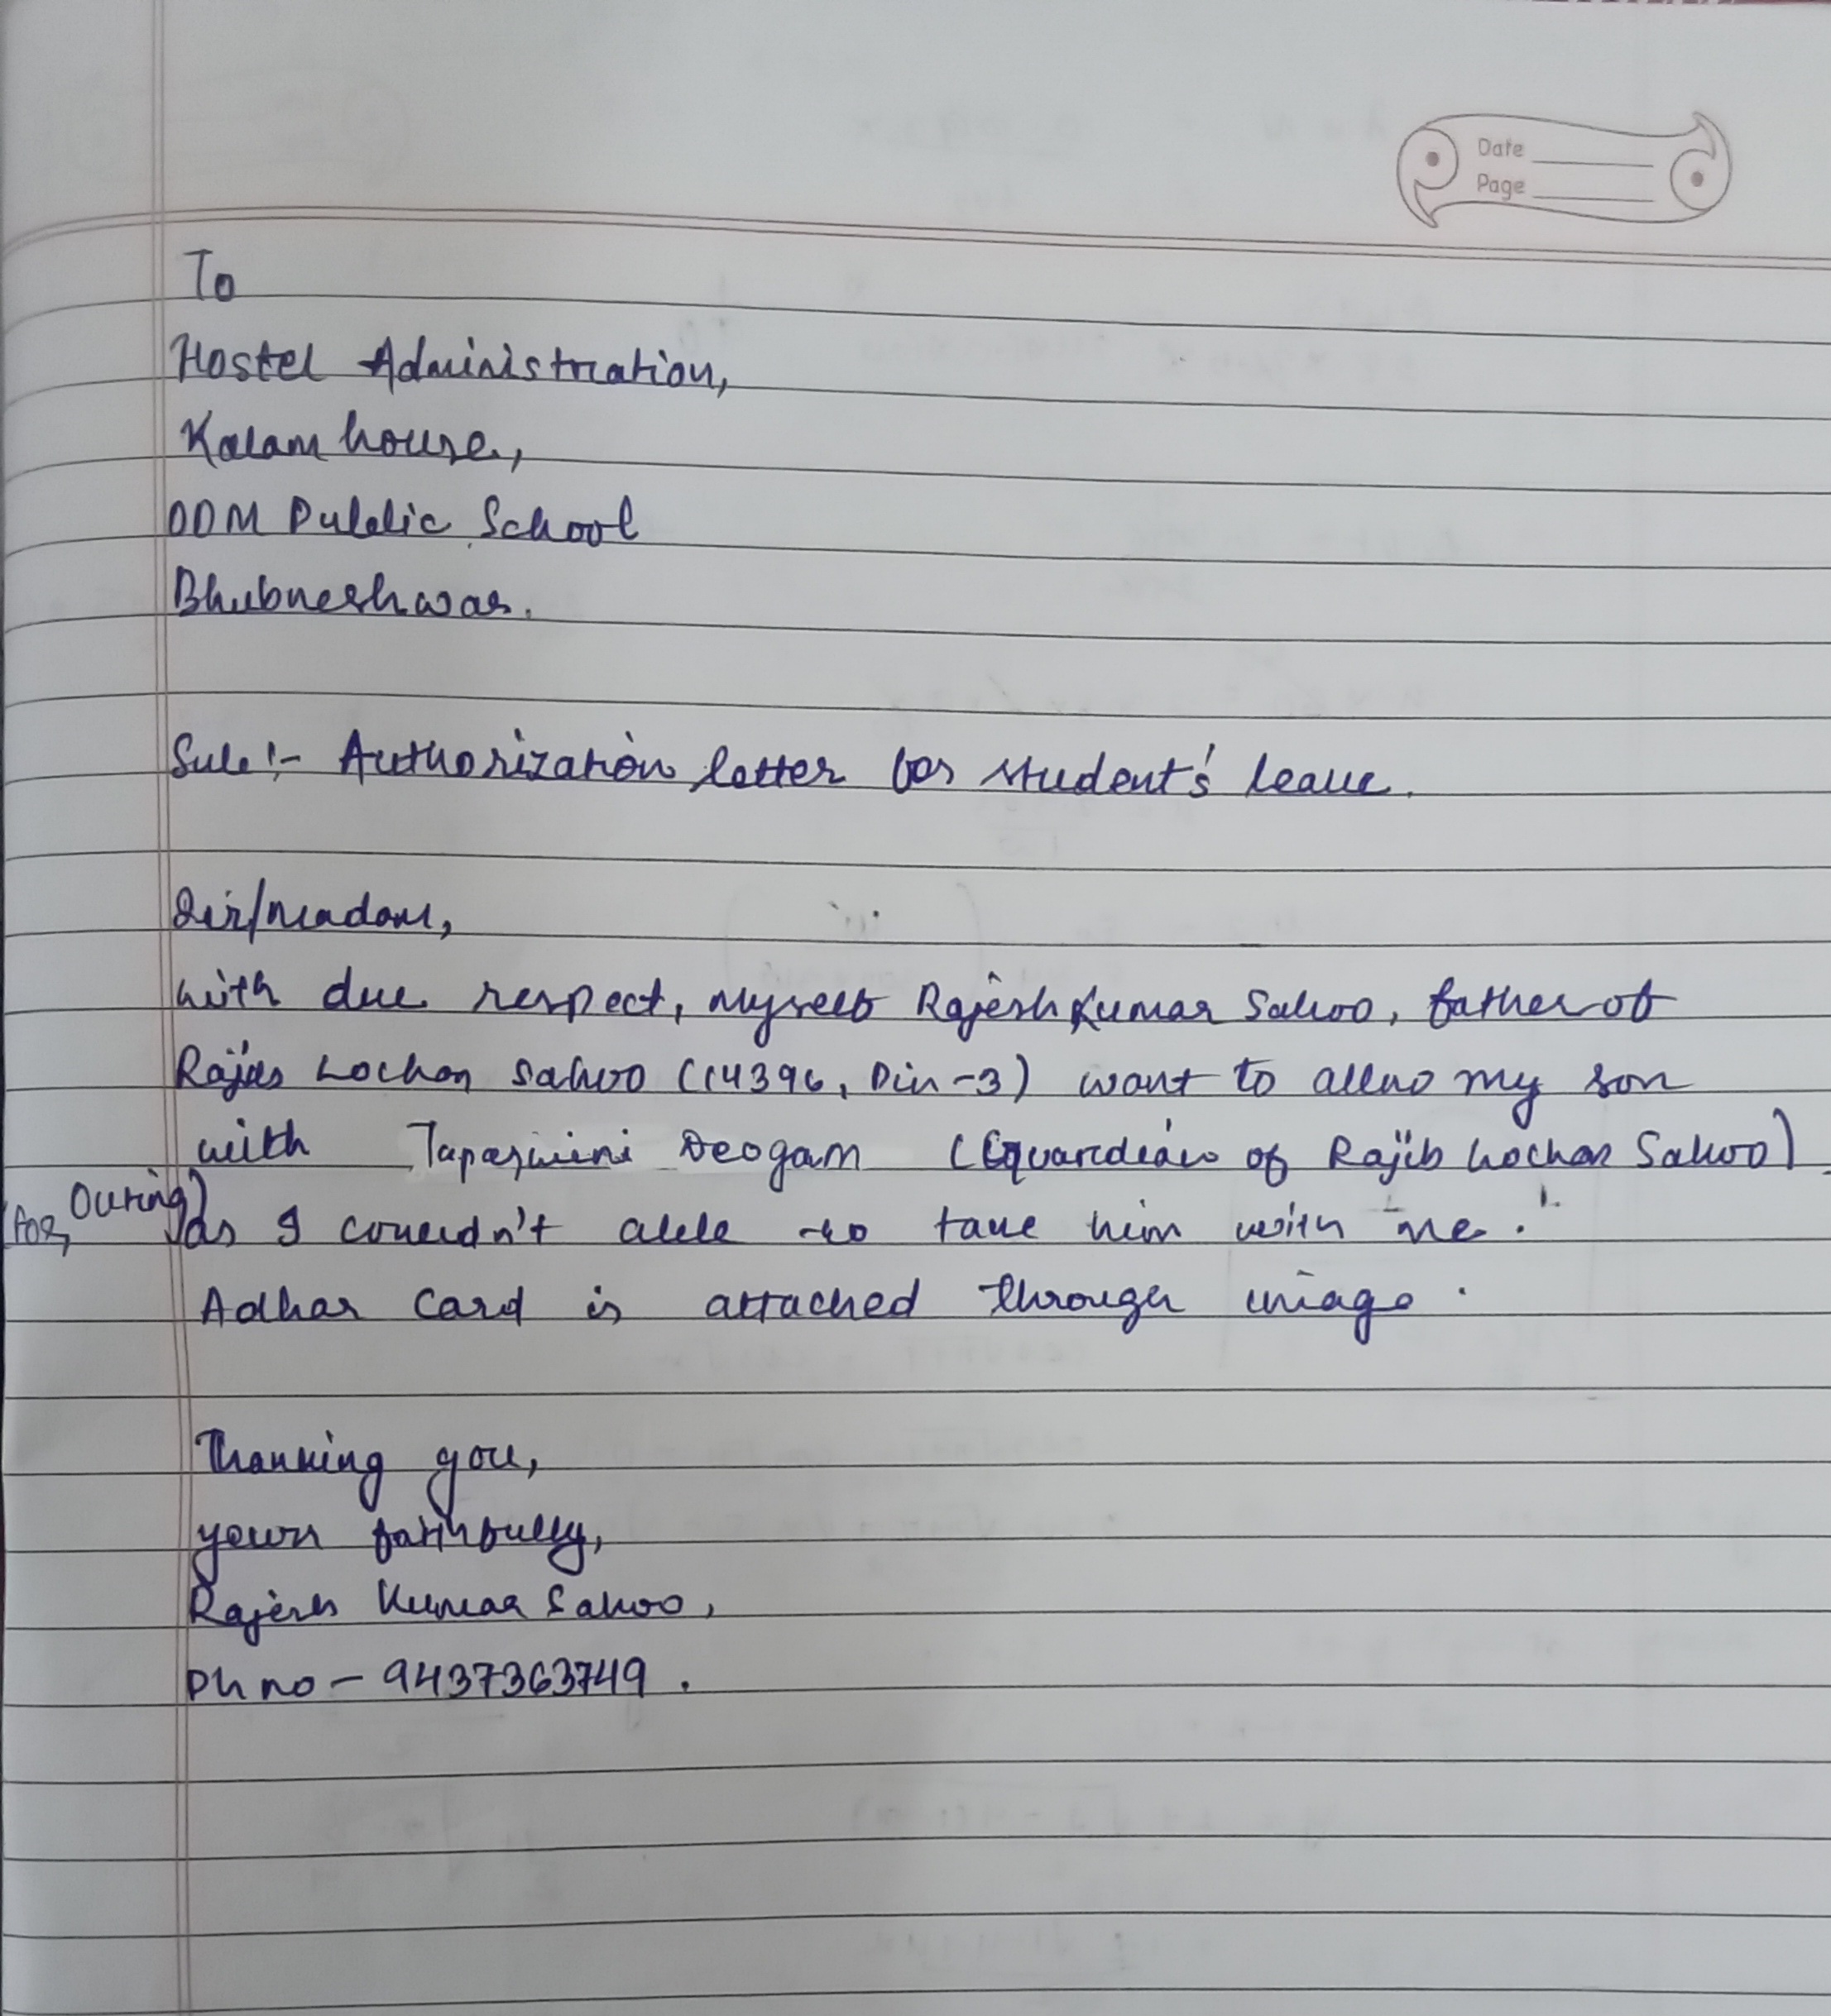 Date
Page
To
Hostel Administration,
Kalam house,
ODM Public School
Bhubneshwar.
Sub:- Authorization letter for student's leave.
Sir/madam,
with due respect, myself Rajesh Kumar Sahoo, father of
Lochan Sahoo (14396, Div-3) want to allow my son
with Tapaswini Deogam (Guardian of Rajib Lochan Sahoo)
(for, Outing) as I couldn't able to take him with me.
Adhar card is attached through image.
Thanking you,
yours faithfully,
Rajesh Kumar Sahoo,
Ph no - 9437363749.